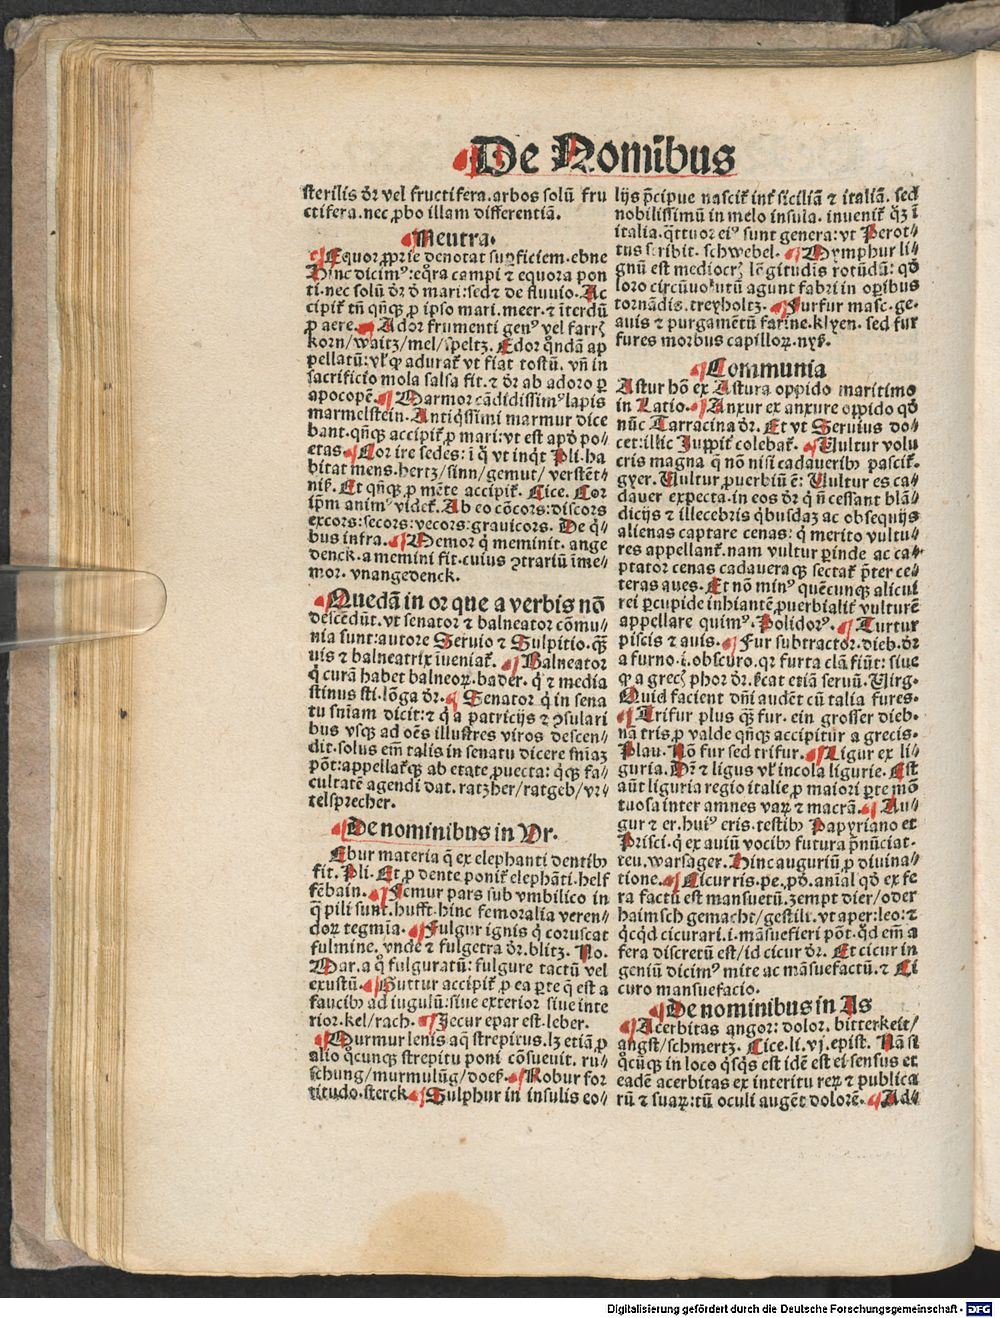 De Nominibus
sterilis dr̄ vel fructifera. arbos solū fru
ctifera. nec ꝓbo illam differentiā.
Neutra.
Equor ꝓprie denotat suꝑficiem. ebne
Hinc dicimꝰ: eq̄ra campi ⁊ equora pon
ti. nec solū dr̄ d̄ mari: sed ⁊ de fluuio. Ac
cipit̄ tn̄ qn̄qꝫ ꝓ ipso mari. meer. ⁊ iterdū
ꝓ aere. Ador frumenti genꝰ vel farrꝫ
korn/waitz/mel/speltz. Edor q̄ndā ap
pellatū: vl̓ ꝙ adurat̄ vt fiat tostū. vn̄ in
sacrificio mola salsa fit. ⁊ dr̄ ab adoro ꝑ
apocopē. Marmor cādidissimꝰ lapis
marmelstein. Antiq̄ssimi marmur dice
bant. qn̄qꝫ accipit̄ ꝓ mari: vt est apd̓ po⸗
etas. Cor ire sedes: ī q̄ vt inq̄t Pli. ha
bitat mens. hertz/sinn/gemut/ verstēt⸗
niß. Et qn̄qꝫ ꝓ mēte accipit̄. Cice. Cor
ip̄m animꝰ videt̄. Ab eo cōcors: discors
excors: secors: vecors: grauicors. De q̄⸗
bus infra. Memor q̄ meminit. ange
denck. a memini fit. cuius ꝯtrariū īme⸗
mor. vnangedenck.
Quedā in or que a verbis nō
descēdūt. vt senator ⁊ balneator cōmu⸗
nia sunt: autore Seruio ⁊ Sulpitio. qꝫ̄
uis ⁊ balneatrix iueniat̄. Balneator
q̄ curā habet balneoꝝ. bader. q̄ ⁊ media
stinus sti. lōga dr̄. Senator q̄ in sena
tu sn̄iam dicit: ⁊ q̄ a patricijs ⁊ ꝯsulari
bus vsqꝫ ad oēs illustres viros descen⸗
dit. solus em̄ talis in senatu dicere sn̄iaꝫ
pōt: appellat̄qꝫ ab etate ꝓuecta: q̄qꝫ fa⸗
cultatē agendi dat. ratzher/ratgeb/vr⸗
telsprecher.
De nominibus in Ur.
Ebur materia q̄ ex elephanti dentibꝫ
fit. Pli. Et ꝓ dente ponit̄ elephāti. helf
fēbain. Femur pars sub vmbilico in
q̄ pili sunt. hufft. hinc femoralia veren⸗
doꝝ tegmīa. Fulgur ignis q̄ coruscat
fulmine. vnde ⁊ fulgetra dr̄. blitz. Po.
Mar. a q̄ fulguratū: fulgure tactū vel
exustū. Guttur accipit̄ ꝓ ea ꝑte q̄ est a
faucibꝫ ad iugulū: siue exterior siue inte
rior. kel/rach. Jecur epar est. leber.
Murmur lenis aq̄ strepitus. lꝫ etiā ꝓ
alio q̄cunqꝫ strepitu poni cōsueuit. ru⸗
schung/murmulūg/doeß. Robur for
titudo. sterck. Sulphur in insulis eo⸗
lijs p̄cipue nascit̄ int̄ siciliā ⁊ italiā. sed
nobilissimū in melo insula. inuenit̄ qꝫ ī
italia. q̄ttuor eiꝰ sunt genera: vt Perot⸗
tus scribit. schwebel. Nymphur li⸗
gnū est mediocrꝫ lēgitudis rotūdā: qd̓
loro circūuolutū agunt fabri in oꝑibus
tornādis. treyholtz. Furfur masc. ge.
auis ⁊ purgamētū farine. klyen. sed fur
fures morbus capilloꝝ. nyß.
Communia
Astur hō ex Astura oppido maritimo
in Latio. Anxur ex anxure oppido qd̓
nūc Tarracina dr̄. Et vt Seruius do⸗
cet: illic Juppit̄ colebat̄. Vultur volu
cris magna q̄ nō nisi cadaueribꝫ pascit̄.
gyer. Vultur ꝓuerbiū ē: Vultur es ca⸗
dauer expecta. in eos dr̄ q̄ n̄ cessant blā⸗
dicijs ⁊ illecebris q̄busdaꝫ ac obsequijs
alienas captare cenas: q̄ merito vultu⸗
res appellant̄. nam vultur ꝑinde ac ca⸗
ptator cenas cadaueraqꝫ sectat̄ p̄ter ce⸗
teras aues. Et nō minꝰ quēcunqꝫ alicui
rei ꝑcupide inhiantē ꝓuerbialit̄ vulturē
appellare quimꝰ. Polidorꝰ. Turtur
piscis ⁊ auis. Fur subtractor. dieb. dr̄
a furno. i. obscuro. qr furta clā fiūt: siue
ꝙ a grecꝫ phor dr̄. ßcat etiā seruū. Virg.
Quid facient dn̄i audēt cū talia fures.
Trifur plus qꝫ̄ fur. ein grosser dieb.
nā tris ꝓ valde qn̄qꝫ accipitur a grecis.
Plau. Nō fur sed trifur. Ligur ex li⸗
guria. Dr̄ ⁊ ligus vl̓ incola ligurie. Est
aūt liguria regio italie ꝓ maiori ꝑte mō
tuosa inter amnes vaꝝ ⁊ macrā. Au⸗
gur ⁊ er. huiꝰ cris. testibꝫ Papyriano et
Prisci. q̄ ex auiū vocibꝫ futura p̄nūciat.
teu. warsager. Hinc auguriū ꝓ diuina⸗
tione. Cicur ris. pe. pd̓. anīal qd̓ ex fe
ra factū est mansuetū. zempt dier/oder
haimsch gemacht/gestili. vt aper: leo: ⁊
q̄cqd̓ cicurari. i. māsuefieri pōt. qd̓ em̄ a
fera discretū est/id cicur dr̄. Et cicur in
geniū dicimꝰ mite ac māsuefactū. ⁊ Ci
curo mansuefacio.
De nominibus in As
Acerbitas angor: dolor. bitterkeit/
angst/schmertz. Cice. li. vj. epist. Nā si
q̄cūqꝫ in loco q̄sqs̄ est idē est ei sensus et
eadē acerbitas ex interitu reꝝ ⁊ publica
rū ⁊ suaꝝ: tū oculi augēt dolorē. Ad⸗
Digitalisierung gefördert durch die Deutsche Forschungsgemeinschaft - DFG